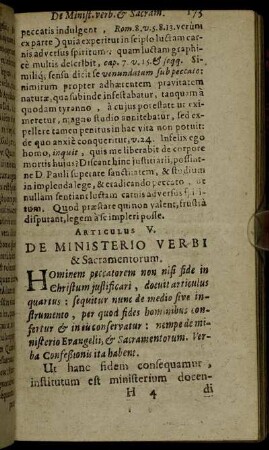 De Minist. verb. & Sacram. 175
peccatis indulgent, Rom. 8. v. 5. 8. 13. verùm
ex parte) quia experitur in seipso luctam car-
nis adversus spiritum: quam luctam graphi-
cè multis describit, cap. 7. v. 15. & seqq. Si-
mili, sensu dicit se venundatum sub peccato:
nimirum propter adhærentem pravitatem
naturæ, qua subinde infestabatur, tanquam à
quodam tyranno, à cujus potestate ut exi-
meretur, magno studio annitebatur, sed ex-
pellere tamen penitus in hac vita non potuit:
de quo anxiè conqueritur, v. 24. Infelix ego
homo, inquit, quis me liberabit de corpore
mortis hujus? Discant hinc justitiarii, possint-
ne D. Pauli superare sanctitatem, & studium
in implenda lege, & eradicando peccato, ut
nullam sentiant luctam carnis adversus spiri-
tum. Quod præstare qui non valent, frustrà
disputant, legem à se impleri posse.
ARTICULUS V.
DE MINISTERIO VERBI
& Sacramentorum.
Hominem peccatorem non nisi fide in
Christum justificari, docuit articulus
quartus: sequitur nunc de medio sive in-
strumento, per quod fides hominibus con-
fertur & in iis conservatur: nempe de mi-
nisterio Evangelii, & Sacramentorum. Ver-
ba Confessionis ita habent.
Ut hanc fidem consequamur,
institutum est ministerium docen-
H 4 di